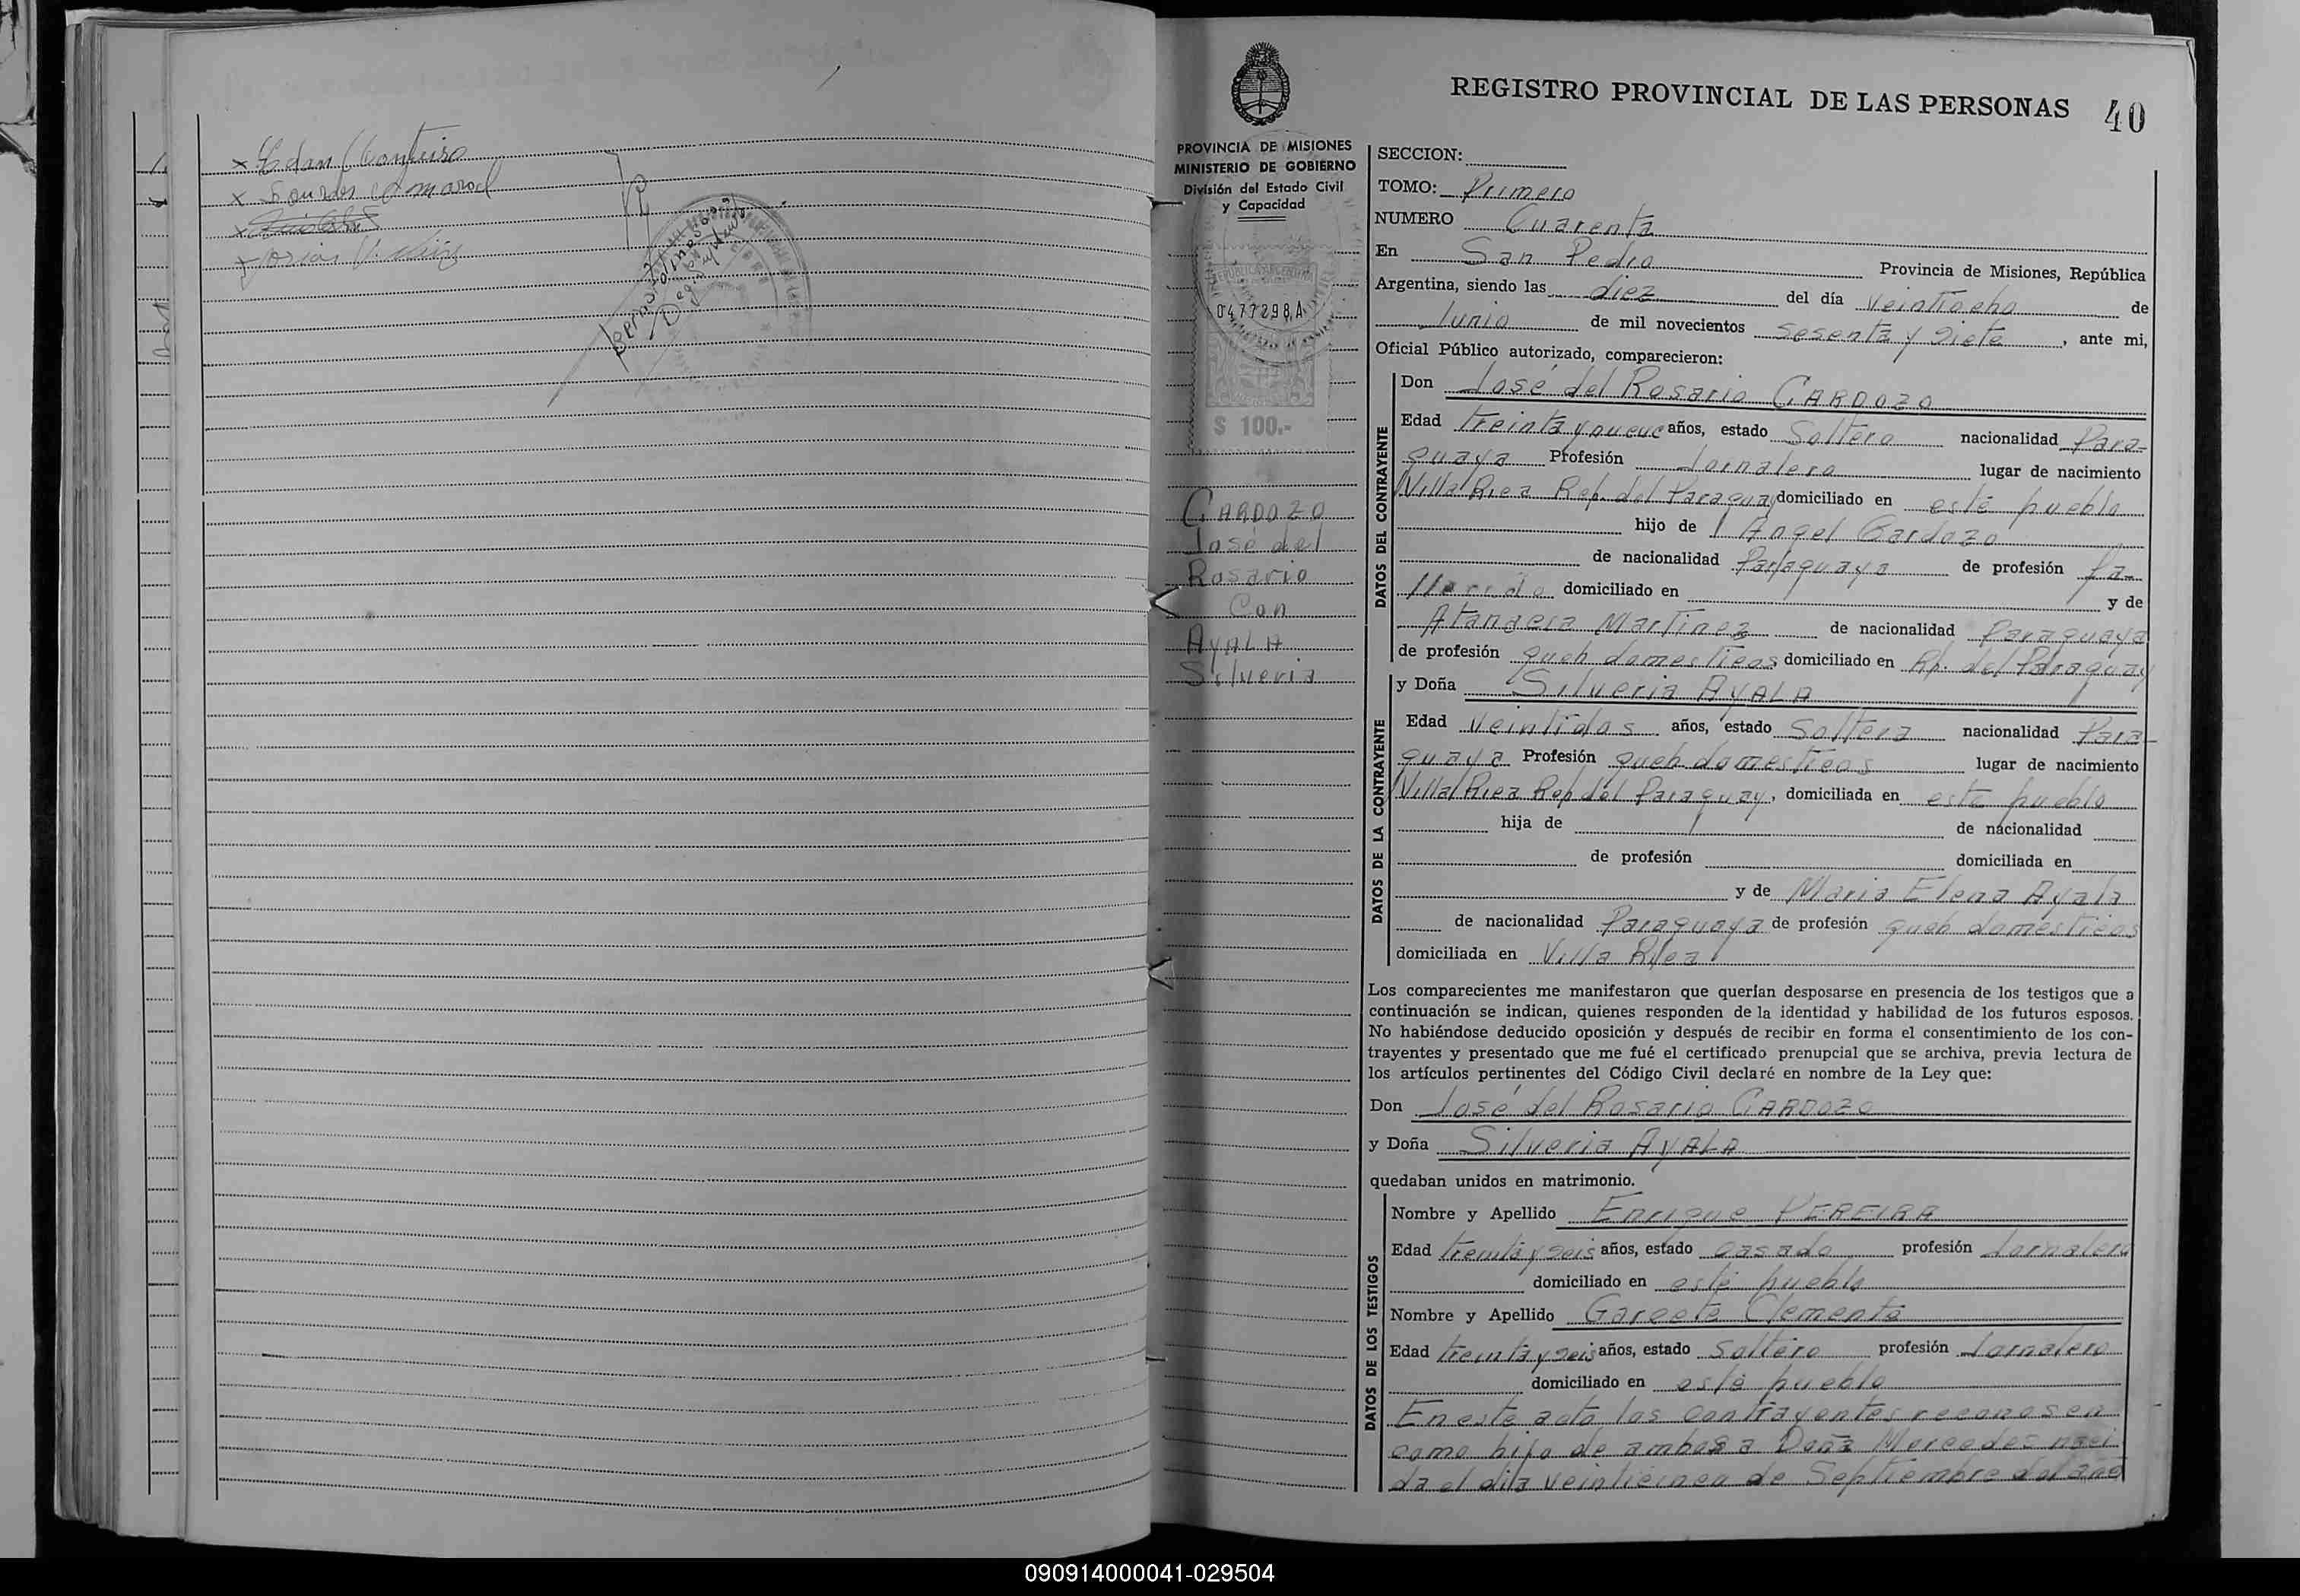 REGISTRO PROVINCIAL DE LAS PERSONAS 40
PROVINCIA DE MISIONES
MINISTERIO DE GOBIERNO
División del Estado Civil
y Capacidad
REPUBLICA ARGENTINA
0477298A
$ 100.-
CARDOZO
José del
Rosario
Con
AYALA
Silveria
SECCION:
TOMO: Primero
NUMERO Cuarenta
En San Pedro Provincia de Misiones, República
Argentina, siendo las diez del día Veintiocho de
Junio de mil novecientos sesenta y siete, ante mi,
Oficial Público autorizado, comparecieron:
DATOS DEL CONTRAYENTE
Don José del Rosario CARDOZO
Edad treinta y nueve años, estado Soltero nacionalidad Para-
guaya Profesión Jornalero lugar de nacimiento
Villa Rica Rep. del Paraguay domiciliado en este pueblo
hijo de Angel Cardozo
de nacionalidad Paraguaya de profesión fa-
llecido domiciliado en y de
Atanacia Martinez de nacionalidad Paraguaya
de profesión queh domesticos domiciliado en Rp. del Paraguay
DATOS DE LA CONTRAYENTE
y Doña Silveria AYALA
Edad Veintidos años, estado Soltera nacionalidad Para-
guaya Profesión queh domesticos lugar de nacimiento
Villa Rica Rep del Paraguay, domiciliada en este pueblo
hija de de nacionalidad
de profesión domiciliada en
y de Maria Elena Ayala
de nacionalidad Paraguaya de profesión queh domesticos
domiciliada en Villa Rica
Los comparecientes me manifestaron que querían desposarse en presencia de los testigos que a
continuación se indican, quienes responden de la identidad y habilidad de los futuros esposos.
No habiéndose deducido oposición y después de recibir en forma el consentimiento de los con-
trayentes y presentado que me fué el certificado prenupcial que se archiva, previa lectura de
los artículos pertinentes del Código Civil declaré en nombre de la Ley que:
Don José del Rosario CARDOZO
y Doña Silveria AYALA
quedaban unidos en matrimonio.
DATOS DE LOS TESTIGOS
Nombre y Apellido Enrique PEREIRA
Edad treinta y seis años, estado casado profesión Jornalero
domiciliado en este pueblo
Nombre y Apellido Gareete Clemente
Edad treinta y seis años, estado Soltero profesión Jornalero
domiciliado en este pueblo
En este acto los contrayentes reconosen
como hija de ambos a Doña Mercedes naci
da el dia veinticinco de Septiembre del año
090914000041-029504